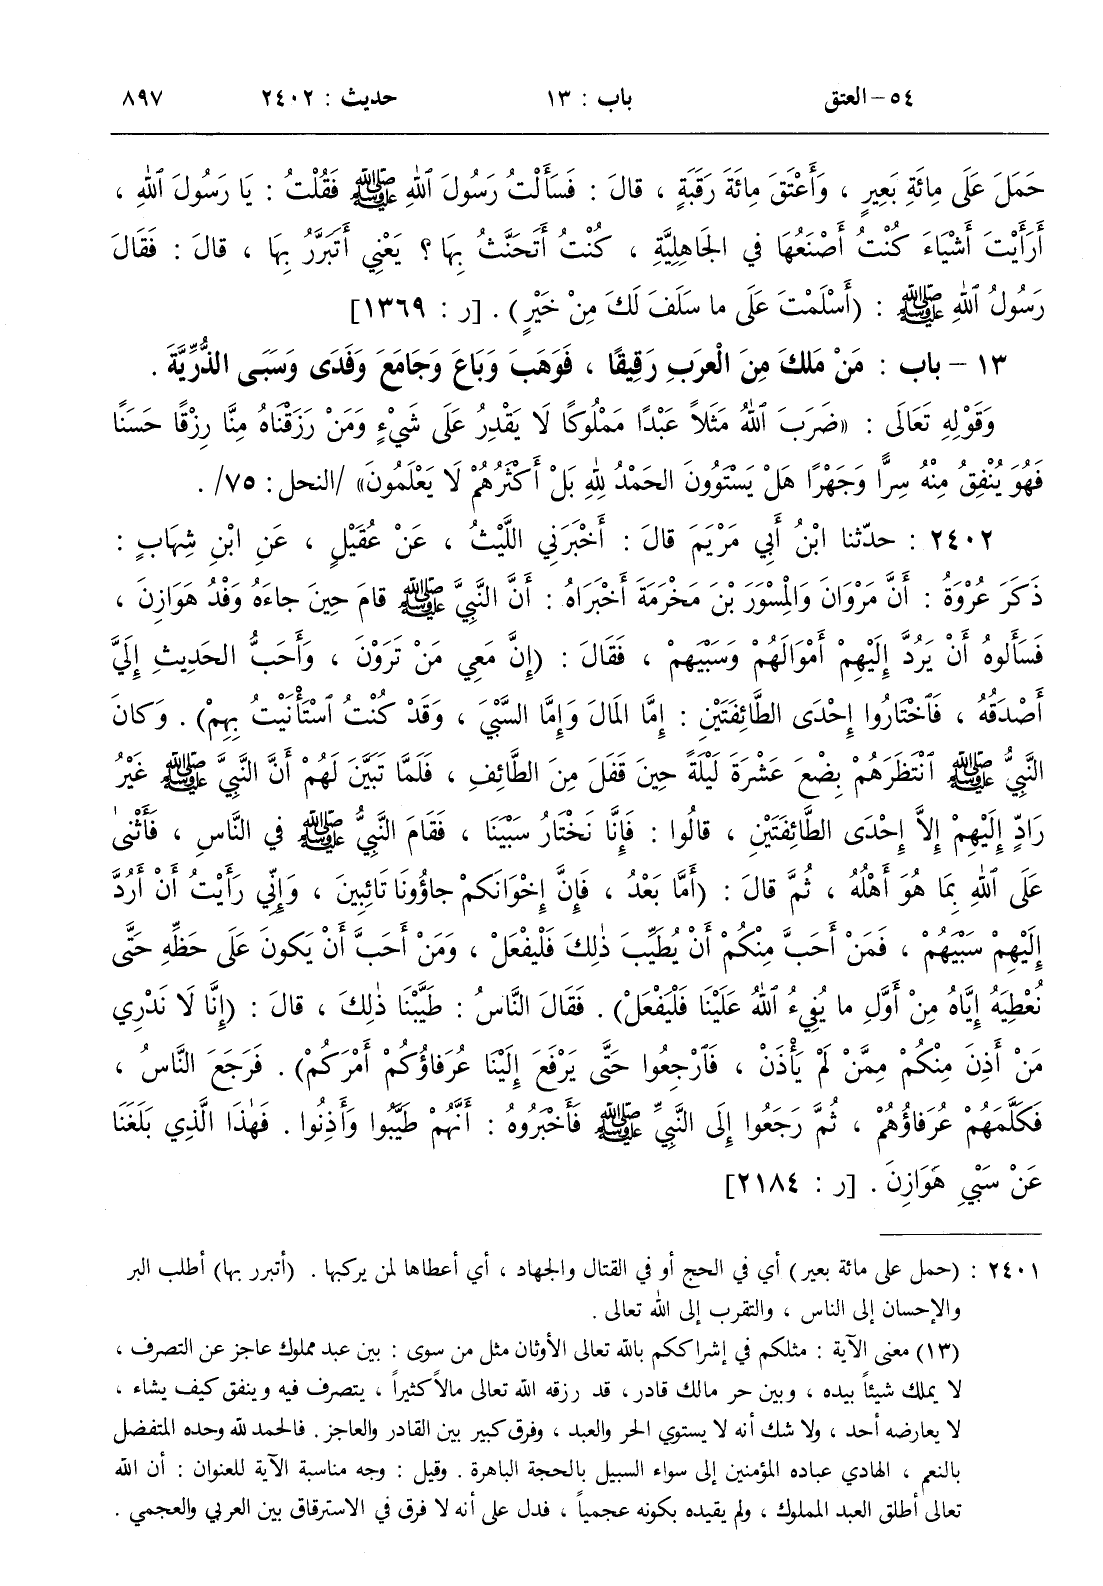 ٥٤ - العتق باب : ١٣ حديث : ٢٤٠٢ ٨٩٧
حَمَلَ عَلَى مِائَةِ بَعِيرٍ ، وَأَعْتَقَ مِائَةَ رَقَبَةٍ ، قالَ : فَسَأَلْتُ رَسُولَ ٱللهِ ﷺ فَقُلْتُ : يَا رَسُولَ ٱللهِ ،
أَرَأَيْتَ أَشْيَاءَ كُنْتُ أَصْنَعُهَا في الجَاهِلِيَّةِ ، كُنْتُ أَتَحَنَّثُ بِهَا ؟ يَعْنِي أَتَبَرَّرُ بِهَا ، قالَ : فَقَالَ
رَسُولُ ٱللهِ ﷺ : (أَسْلَمْتَ عَلَى ما سَلَفَ لَكَ مِنْ خَيْرٍ) . [ر : ١٣٦٩]
١٣ - باب : مَنْ مَلَكَ مِنَ الْعَرَبِ رَقِيقًا ، فَوَهَبَ وَبَاعَ وَجَامَعَ وَفَدَى وَسَبَى الذُّرِّيَّةَ .
وَقَوْلِهِ تَعَالَى : «ضَرَبَ ٱللهُ مَثَلاً عَبْدًا مَمْلُوكًا لَا يَقْدِرُ عَلَى شَيْءٍ وَمَنْ رَزَقْنَاهُ مِنَّا رِزْقًا حَسَنًا
فَهُوَ يُنْفِقُ مِنْهُ سِرًّا وَجَهْرًا هَلْ يَسْتَوُونَ الحَمْدُ لِلهِ بَلْ أَكْثَرُهُمْ لَا يَعْلَمُونَ» /النحل : ٧٥/ .
٢٤٠٢ : حدّثنا ابْنُ أَبِي مَرْيَمَ قالَ : أَخْبَرَنِي اللَّيْثُ ، عَنْ عُقَيْلٍ ، عَنِ ابْنِ شِهَابٍ :
ذَكَرَ عُرْوَةُ : أَنَّ مَرْوَانَ وَالمِسْوَرَ بْنَ مَخْرَمَةَ أَخْبَرَاهُ : أَنَّ النَّبِيَّ ﷺ قامَ حِينَ جاءَهُ وَفْدُ هَوَازِنَ ،
فَسَأَلُوهُ أَنْ يَرُدَّ إِلَيْهِمْ أَمْوَالَهُمْ وَسَبْيَهمْ ، فَقَالَ : (إِنَّ مَعِي مَنْ تَرَوْنَ ، وَأَحَبُّ الحَدِيثِ إِلَيَّ
أَصْدَقُهُ ، فَٱخْتَارُوا إِحْدَى الطَّائِفَتَيْنِ : إِمَّا المَالَ وَإِمَّا السَّبْيَ ، وَقَدْ كُنْتُ ٱسْتَأْنَيْتُ بِهِمْ) . وَكانَ
النَّبِيُّ ﷺ ٱنْتَظَرَهُمْ بِضْعَ عَشْرَةَ لَيْلَةً حِينَ قَفَلَ مِنَ الطَّائِفِ ، فَلَمَّا تَبَيَّنَ لَهُمْ أَنَّ النَّبِيَّ ﷺ غَيْرُ
رَادٍّ إِلَيْهِمْ إِلاَّ إِحْدَى الطَّائِفَتَيْنِ ، قالُوا : فَإِنَّا نَخْتَارُ سَبْيَنَا ، فَقَامَ النَّبِيُّ ﷺ في النَّاسِ ، فَأَثْنىٰ
عَلَى ٱللهِ بِمَا هُوَ أَهْلُهُ ، ثُمَّ قالَ : (أَمَّا بَعْدُ ، فَإِنَّ إِخْوَانَكمْ جاؤُونَا تَائِبِينَ ، وَإِنِّي رَأَيْتُ أَنْ أَرُدَّ
إِلَيْهِمْ سَبْيَهُمْ ، فَمَنْ أَحَبَّ مِنْكُمْ أَنْ يُطَيِّبَ ذٰلِكَ فَلْيَفْعَلْ ، وَمَنْ أَحَبَّ أَنْ يَكونَ عَلَى حَظِّهِ حَتَّى
نُعْطِيَهُ إِيَّاهُ مِنْ أَوَّلِ ما يُفِيءُ ٱللهُ عَلَيْنَا فَلْيَفْعَلْ) . فَقَالَ النَّاسُ : طَيَّبْنَا ذٰلِكَ ، قالَ : (إِنَّا لَا نَدْرِي
مَنْ أَذِنَ مِنْكُمْ مِمَّنْ لَمْ يَأْذَنْ ، فَٱرْجِعُوا حَتَّى يَرْفَعَ إِلَيْنَا عُرَفاؤُكُمْ أَمْرَكُمْ) . فَرَجَعَ النَّاسُ ،
فَكَلَّمَهُمْ عُرَفاؤُهُمْ ، ثُمَّ رَجَعُوا إِلَى النَّبِيِّ ﷺ فَأَخْبَرُوهُ : أَنَّهُمْ طَيَّبُوا وَأَذِنُوا . فَهٰذَا الَّذِي بَلَغَنَا
عَنْ سَبْيِ هَوَازِنَ . [ر : ٢١٨٤]
٢٤٠١ : (حمل على مائة بعير) أي في الحج أو في القتال والجهاد ، أي أعطاها لمن يركبها . (أتبرر بها) أطلب البر
والإحسان إلى الناس ، والتقرب إلى الله تعالى .
(١٣) معنى الآية : مثلكم في إشراككم بالله تعالى الأوثان مثل من سوى : بين عبد مملوك عاجز عن التصرف ،
لا يملك شيئاً بيده ، وبين حر مالك قادر ، قد رزقه الله تعالى مالاً كثيراً ، يتصرف فيه وينفق كيف يشاء ،
لا يعارضه أحد ، ولا شك أنه لا يستوي الحر والعبد ، وفرق كبير بين القادر والعاجز . فالحمد لله وحده المتفضل
بالنعم ، الهادي عباده المؤمنين إلى سواء السبيل بالحجة الباهرة . وقيل : وجه مناسبة الآية للعنوان : أن الله
تعالى أطلق العبد المملوك ، ولم يقيده بكونه عجمياً ، فدل على أنه لا فرق في الاسترقاق بين العربي والعجمي .